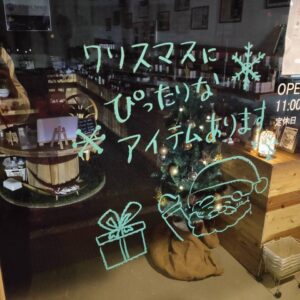 クリスマスに
ぴったりな
アイテムあります
OPE
11:00
定休日